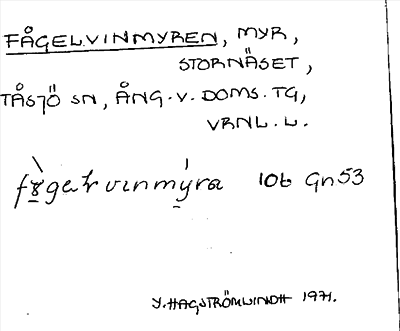 FÅGELVINMYREN, MYR,
STORNÄSET,
TÅSJÖ SN, ÅNG.V.DOMS.TG,
VRNL.L.
10b Gn53
Y. HAGSTRÖMLINDH 1971.